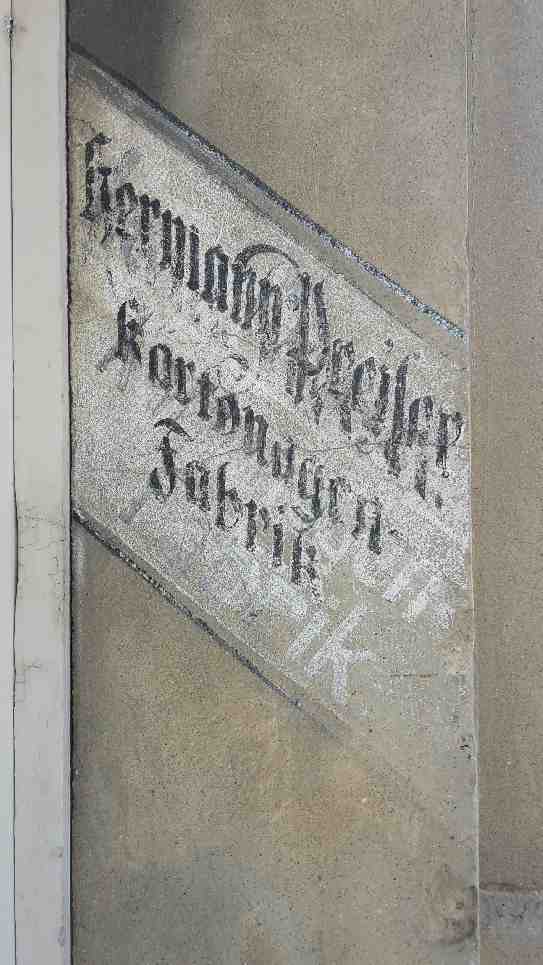 Hermann Preiser
Kartonagen-
Fabrik